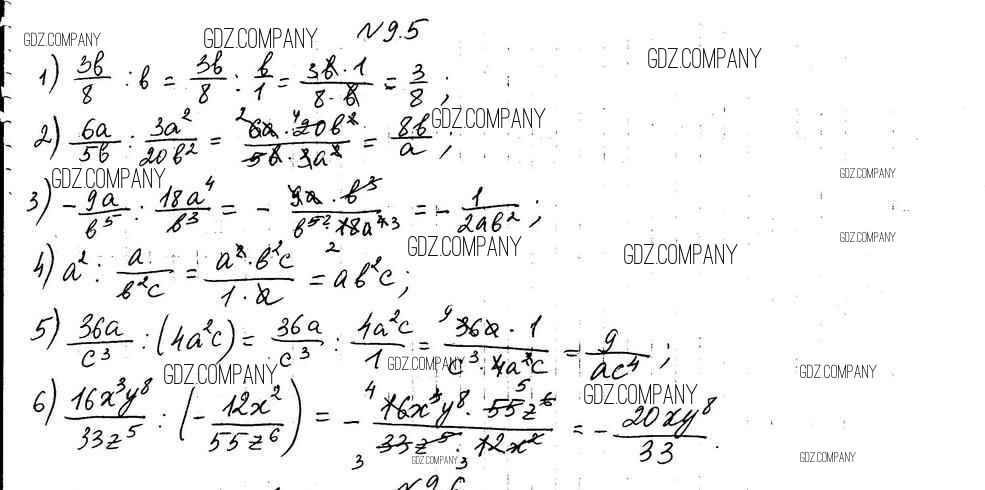 N 9.5
GDZ.COMPANY GDZ.COMPANY GDZ.COMPANY
1) 3b/8 : b = 3b/8 : b/1 = 3b·1/8·b = 3/8;
GDZ.COMPANY
2) 6a/5b : 3a²/20b² = 6a·20b²/5b·3a² = 8b/a;
GDZ.COMPANY GDZ.COMPANY
3) -9a/b⁵ : 18a⁴/b³ = - 9a·b³/b⁵·18a⁴ = - 1/2ab²;
GDZ.COMPANY GDZ.COMPANY GDZ.COMPANY
4) a² : a/b²c = a²·b²c/1·a = ab²c;
5) 36a/c³ : (4a²c) = 36a/c³ : 4a²c/1 = 36a·1/c³·4a²c = 9/ac⁴;
GDZ.COMPANY GDZ.COMPANY GDZ.COMPANY GDZ.COMPANY
6) 16x³y⁸/33z⁵ : (-12x²/55z⁶) = - 16x³y⁸·55z⁶/33z⁵·12x² = - 20xy⁸/33.
GDZ.COMPANY GDZ.COMPANY